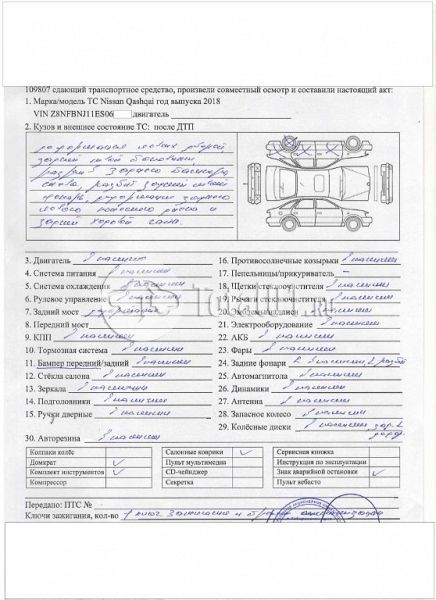 109807 сдающий транспортное средство, произвели совместный осмотр и составили настоящий акт:
1. Марка/модель ТС Nissan Qashqai год выпуска 2018
VIN Z8NFBNJ11ES06 двигатель
2. Кузов и внешнее состояние ТС: после ДТП
деформация левых дверей
задней левой боковины
разбит заднего бампера,
задний левый
фонарь, деформация заднего
левого колесного диска и
задней ходовой части.
3. Двигатель в наличии
4. Система питания в наличии
5. Система охлаждения в наличии
6. Рулевое управление в наличии
7. Задний мост деформация
8. Передний мост
9. КПП в наличии
10. Тормозная система в наличии
11. Бампер передний/задний в наличии
12. Стёкла салона в наличии
13. Зеркала в наличии
14. Подголовники в наличии
15. Ручки дверные в наличии
16. Противосолнечные козырьки в наличии
17. Пепельницы/прикуриватель –
18. Щетки стеклоочистителя в наличии
19. Рычаги стеклоочистителя в наличии
20. Эмблемы/молдинги в наличии
21. Электрооборудование в наличии
22. АКБ в наличии
23. Фары в наличии
24. Задние фонари в наличии
25. Автомагнитола в наличии
26. Динамики в наличии
27. Антенна в наличии
28. Запасное колесо в наличии
29. Колёсные диски в наличии
30. Авторезина в наличии
Колпаки колёс
Салонные коврики ✓
Сервисная книжка
Домкрат ✓
Пульт мультимедии
Инструкция по эксплуатации
Комплект инструментов ✓
CD-чейнджер
Знак аварийной остановки ✓
Компрессор
Секретка
Пульт вебасто
Передано: ПТС №
Ключи зажигания, кол-во 1 ключ зажигания и брелок сигнализации